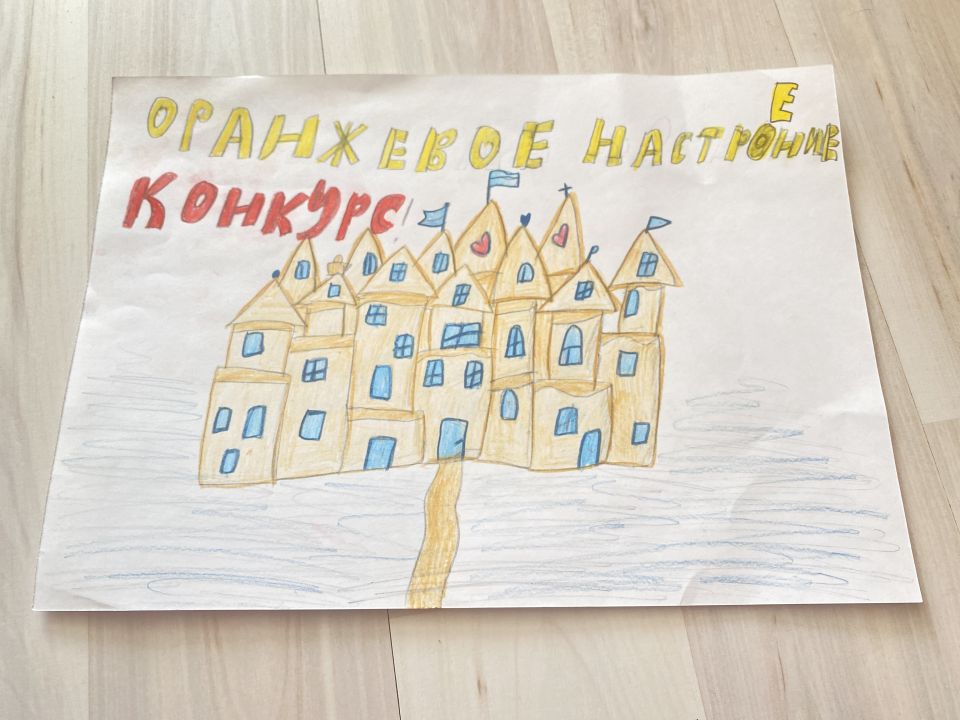 ОРАНЖЕВОЕ НАСТРОЕНИЕ
КОНКУРС!